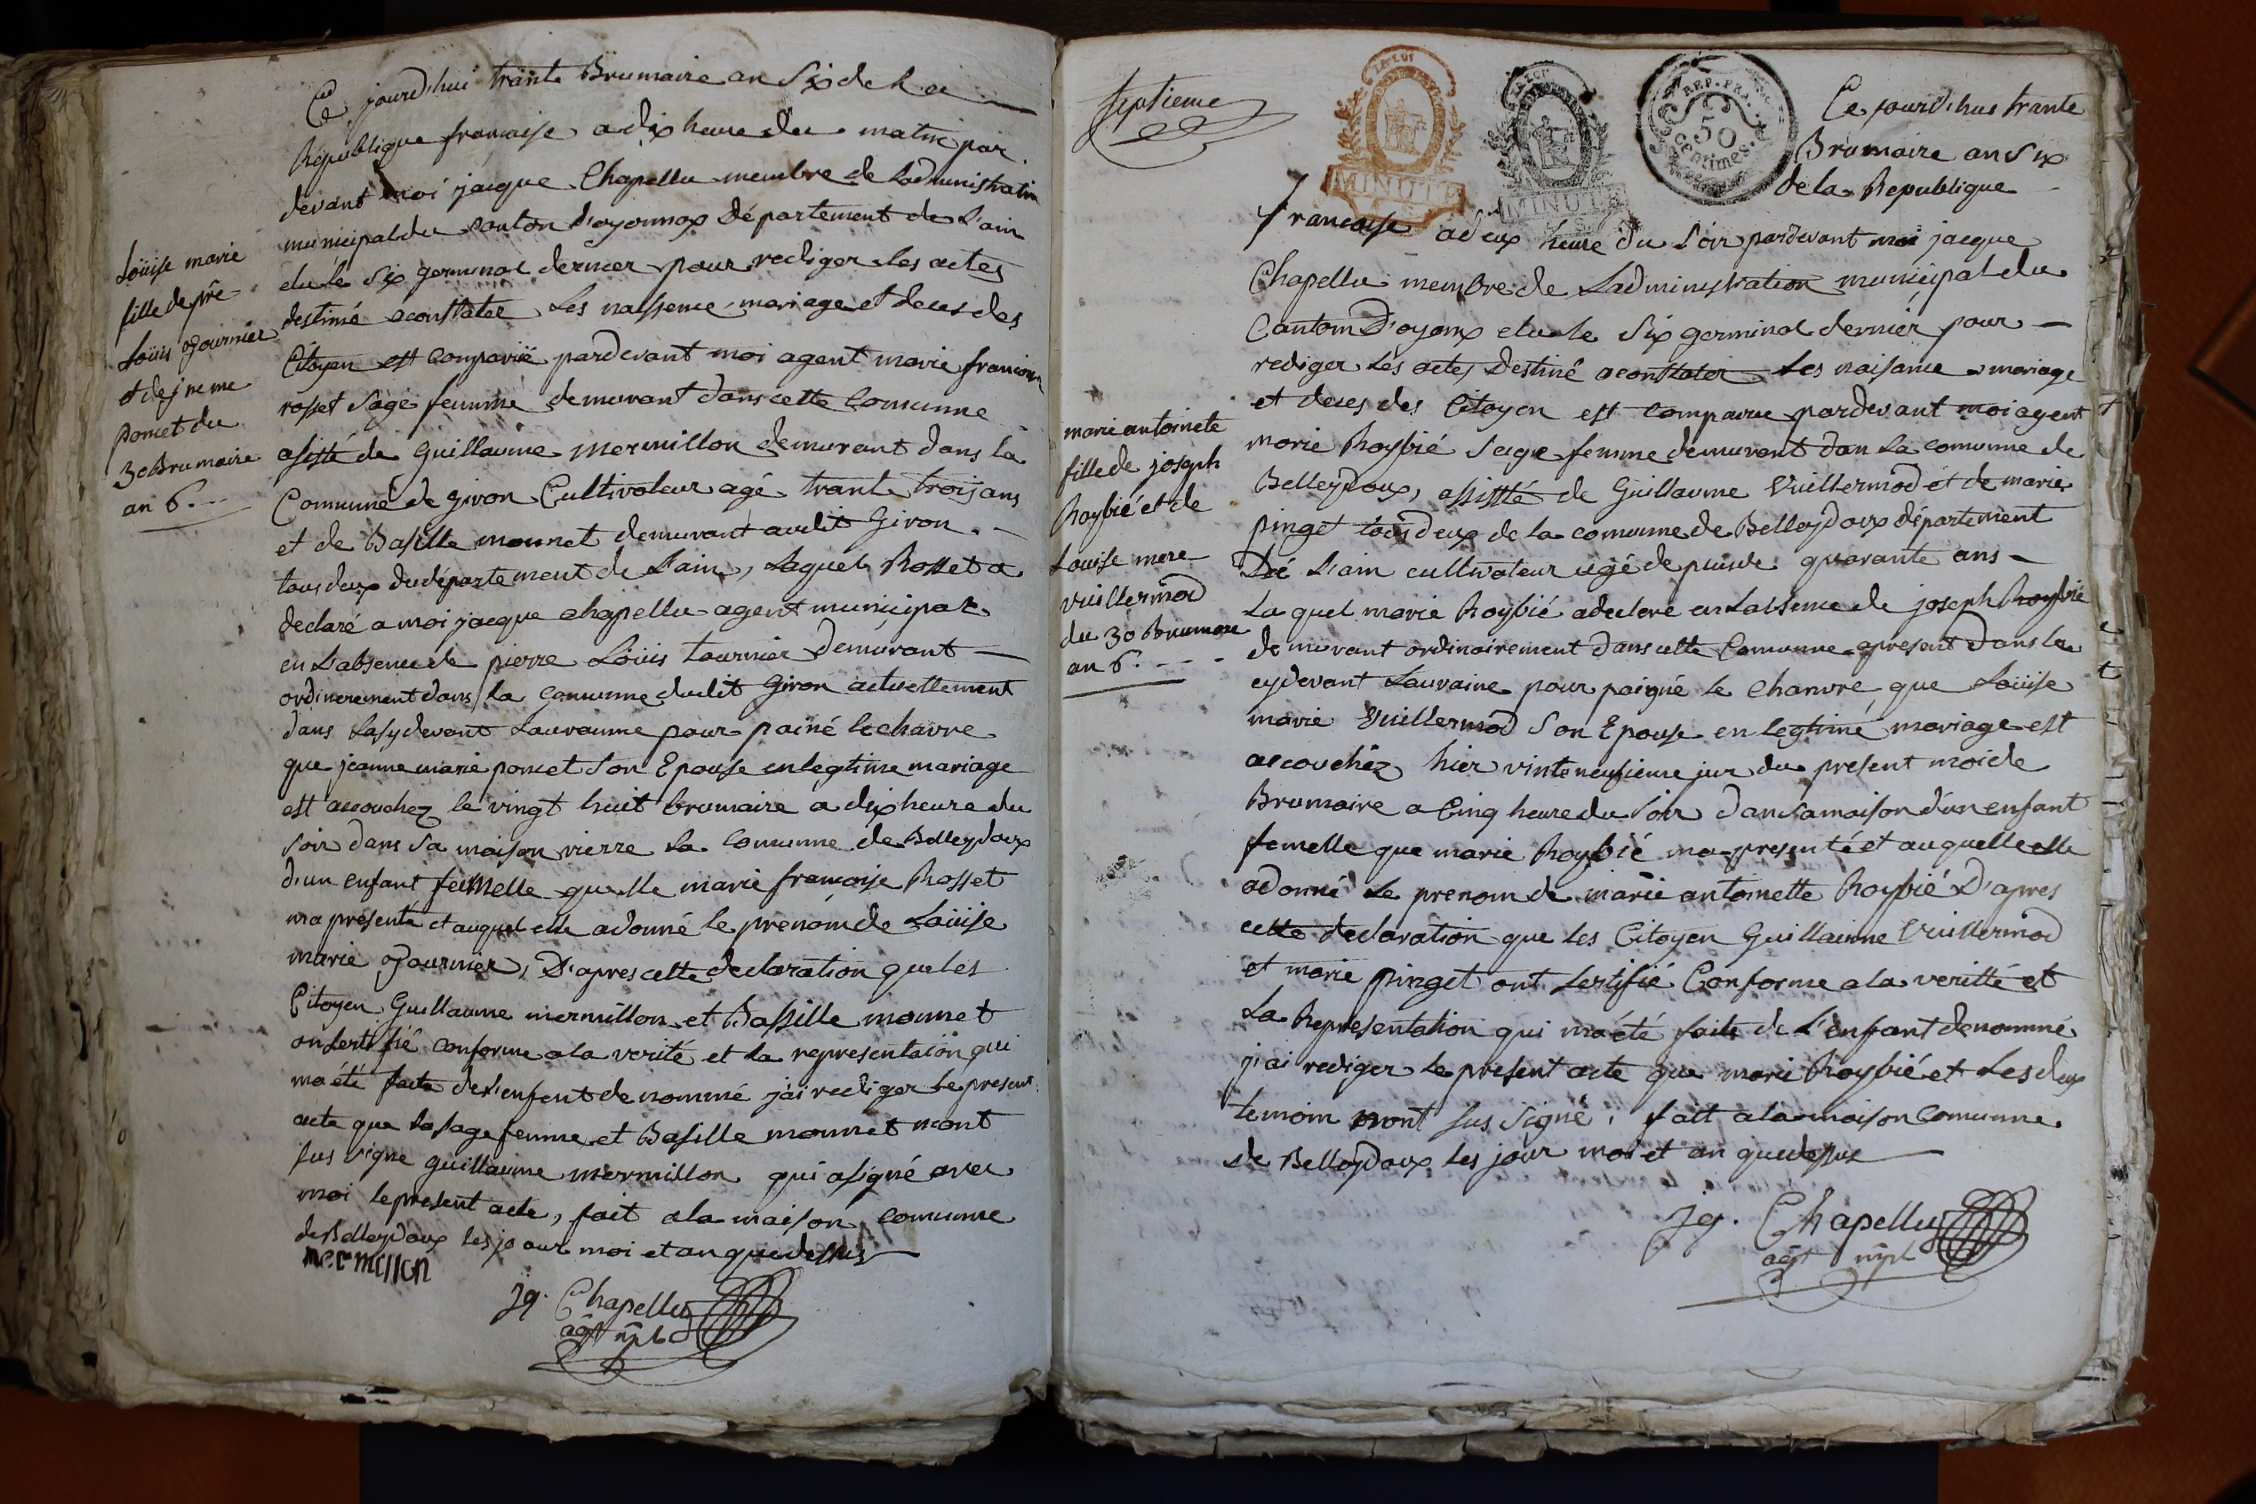 Ce jourd'hui trante Brumaire an Six de la
Republique francaise a dix heure du matin par
devant moi jacque Chapellu membre de Ladministration
municipal du Canton d'oyonnax Département de L'ain
elu le Six germinal dernier pour rediger les actes
destiné a constatee les naissence mariage et deces des
Citoyen est Comparüe pardevant moi agent marie francoise
rosset Sage femme demurant dans cette Comunne
asisté de Guillaume mermillon demurant dans la
Comunne de giron Cultivateur agé trante trois ans
et de Basille monnet demurant audit Giron
tous deux du département de L'ain, Laquel Rosset a
declaré a moi jacque chapellu agent municipal
en L'absence de pierre Loüis tournier demurant
ordinerement dans la Comunne dudit Giron actuellement
dans Lasydevent Lauraume pour painé le chavre
que jeanne marie poncet Son Epouse en legtime mariage
est acouchez le vingt huit brumaire a dix heure du
Soir dans Sa maison rierre La Comunne de Belleydoux
d'un enfant femelle quelle marie francoise Rosset
ma presenté et auquel elle a donné le prenom de Loüise
marie Tournier, D'apres cette declaration que les
Citoyen Guillaume mermillon et Bassille monnet
on Sertifié conforme a la verité et la representaion qui
ma été faite de L'enfent de nommé j'ai rediger le present
acte que la Sage femme et Basille monnet nont
sus signe guillaume mermillon qui a signé avec
moi le present acte, fait a la maison comunne
de Belleydoux les jour moi et an que dessus
mermillon
jq. Chapellu
agt mpl
Loüise marie
fille de pre
Loüis Tournier
et de jneme
poncet du
30 Brumaire
an 6.
Septieme
LA LOI
MINUTE
LA LOI
MINUTE
REP. FRA.
50
centimes.
Ce jourd'hui trante
Brumaire an Six
de la Republique
francaise a deux heure du Soir pardevant moi jacque
Chapellu membre de Ladministration municipal du
Canton D'oyonx elu le Six germinal dernier pour
rediger les actes Destiné a constater Les naisance mariage
et deces des Citoyen est comparue pardevant moi agent
marie Roybié Sage femme demurant dan La comunne de
Belleydoux, assisté de Guillaume Vuillermod et de marie
pinget tous deux de la comunne de Belleydoux département
De L'ain cultivateur agé de quarante ans
La quel marie Roybié a declaré en Labsence de joseph Roybié
demurant ordinairement dans cette Comunne apresent dans la
cydevant Lauraine pour paigné le Chanvre que Loüise
marie Vuillermod Son Epouse en legtime mariage est
acouchéz hier vinte neufieme jur du present moi de
Brumaire a Cinq heure du Soir dan sa maison d'un enfant
femelle que marie Roybié ma presenté et auquelle elle
a donné Le prenom de marie antoinette Roybié D'apres
cette declaration que les Citoyen Guillaume Vuillermod
et marie pinget ont Sertifié Conforme a la verité et
La Representation qui ma été faite de L'enfant denommé
j'ai rediger le present acte que marie Roybié et Les deux
temoin nont sus signé, fait a la maison Comunne
de Belleydoux les jour moi et an que dessus
jq. Chapellu
agt mpl
marie antoinete
fille de joseph
Roybié et de
Louise mere
vuillermod
du 30 Brumaire
an 6.